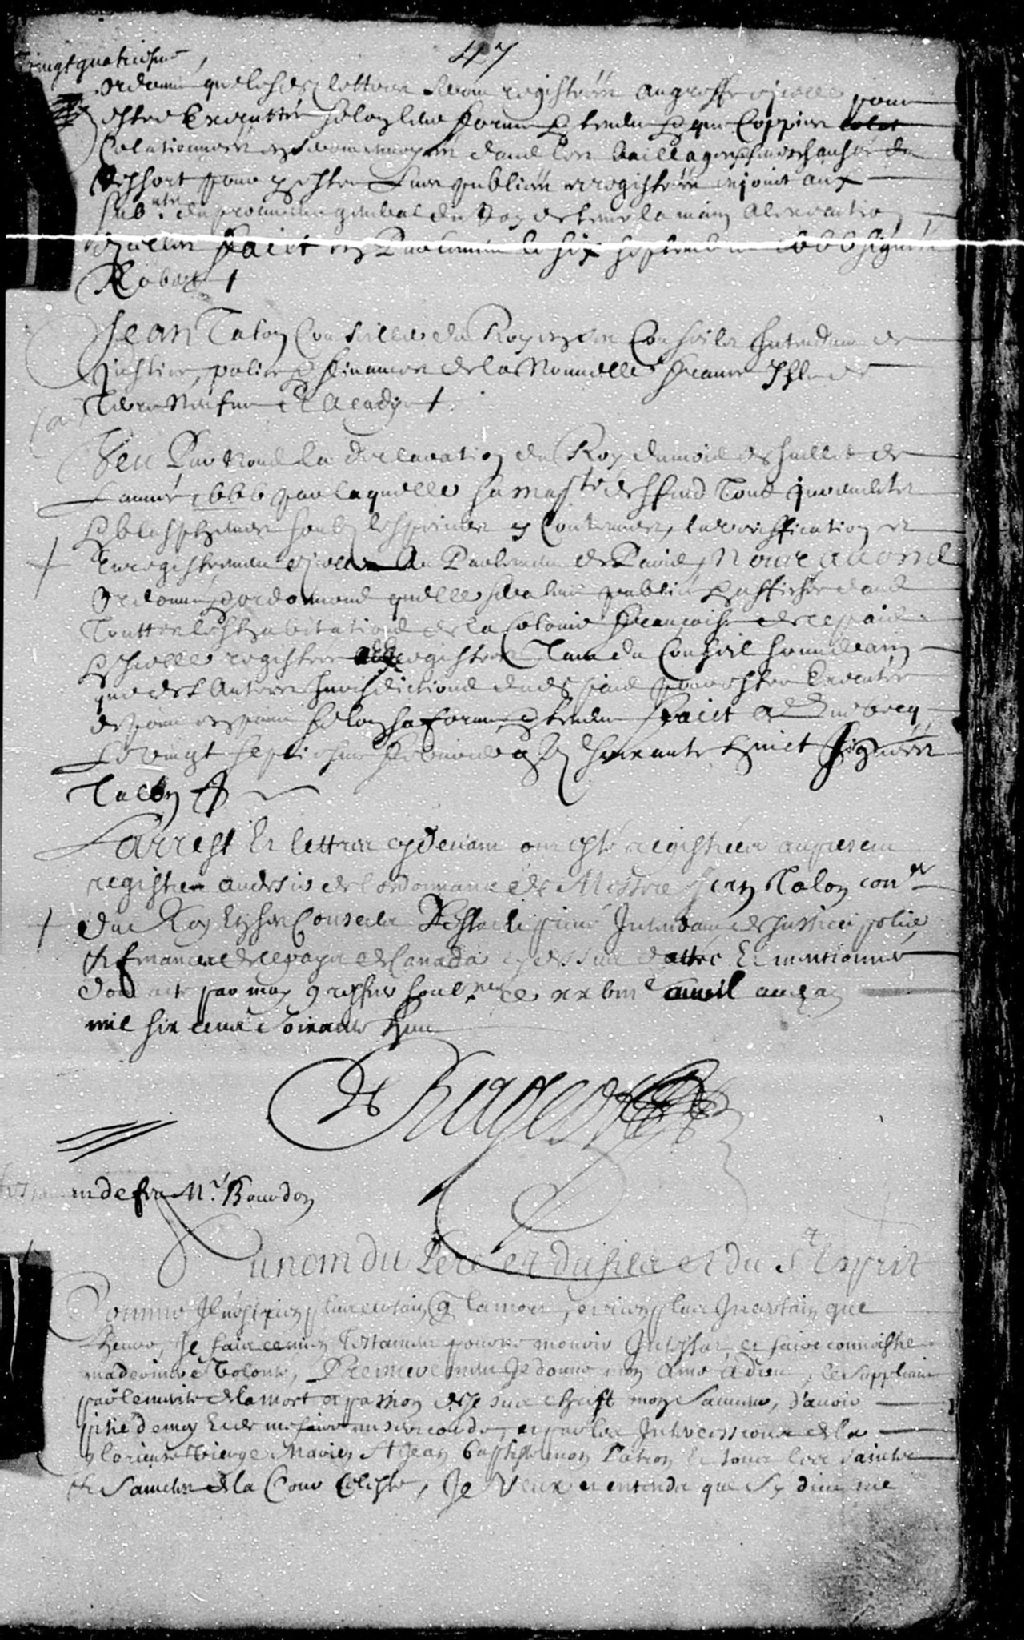 47
vingt quatriesme
ordonne que lesd lettres seront registrées au greffe d'icelle pour
estre Executtée selon leur forme & teneur & que Coppies
Colationnées seront envoyées dans les bailliages senechaussées du
Ressort pour y estre Leues publiées & registrées enjoint aux
subts du procureur general du Roy de tenir la main a l'execution
d'icelles faict en Parlement le six septembre 1666 signé
Robert
Jean Talon Conseiller du Roy en ses Conseils Intendant de
justice, police & finances de la Nouvelle france Isle de
Terre Neufue & Lacadye
Veu Par Nous la declaration du Roy du mois de juillet de
Lannée 1666 par laquelle sa maté deffend Tous juremens
& blasphemes soubz les peines y Contenues, la veriffication et
Enregistrement d'icelle Au Parlement de Paris, Nous avons
Ordonné & ordonnons quelle sera leue publiée & affichée dans
Touttes les habitations de la Colonie francoise de ce pais
& icelle registrée registres Tant du Conseil souuerain
que des Autres Jurisdictions dud pais pour estre Executée
de point en point selon sa forme & teneur faict A Quebecq
Le vingt septiesme soixante & huict Signé
Talon
Larrest & lettres cy devant ont esté registrées au present
registre en desir de lordonnance de Messre Jean Talon conr
du Roy En ses Conseils Destat & privé Intendant de justice police
& finances de ce pays de Canada cy dessus dattée & mentionnée
dont acte par moy greffier soubzné ce xxbme auril aud an
mil six cens soixante huit
Rageot
de feu Mr. Bourdon
Au nom du Pere et du filz et du St Esprit
Comme Il ny a rien plus certain q la mort, et rien plus Incertain que
lheure, Je faict ce mien Testament pour ne mourir Intestat et faire connoistre
ma derniere Volonté, Premierement Je donne mon Ame à dieu, le suppliant
par le merite de la mort & passion de Jesus christ mon Sauueur, d'auoir
pitié de moy & de me faire misericorde, et par les Intercessions de la
glorieuse Vierge Marie, St Jean baptiste mon Patron & tous les saincts
& Sainctes de la Cour Celeste, Je Veux et entends que